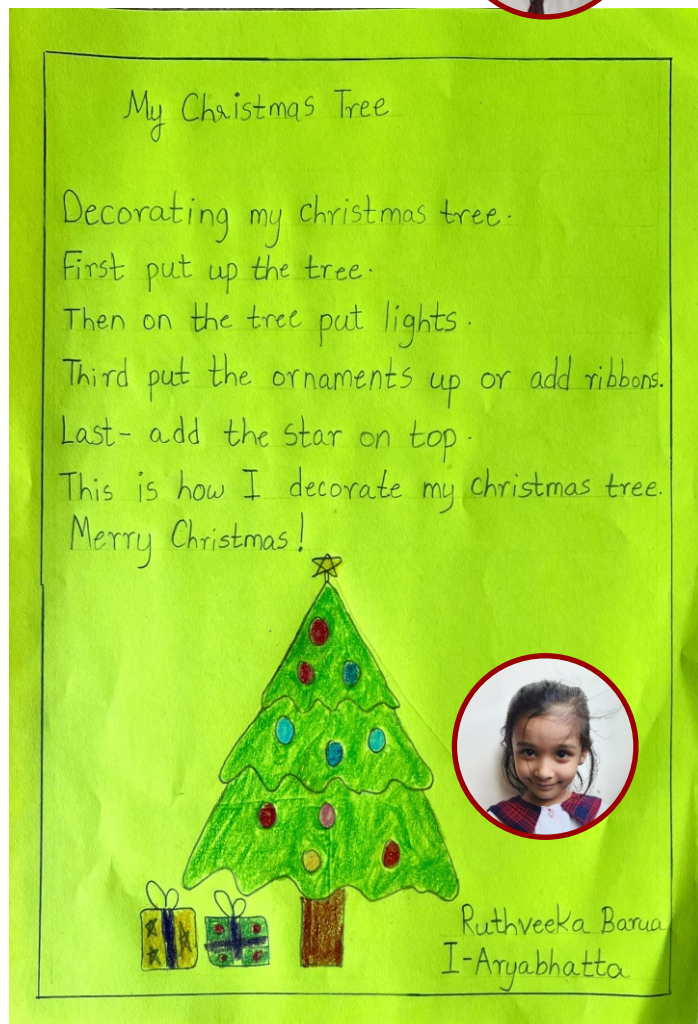 My Christmas Tree
Decorating my christmas tree.
First put up the tree.
Then on the tree put lights.
Third put the ornaments up or add ribbons.
Last- add the star on top.
This is how I decorate my christmas tree.
Merry Christmas!
Ruthveeka Barua
I-Aryabhatta